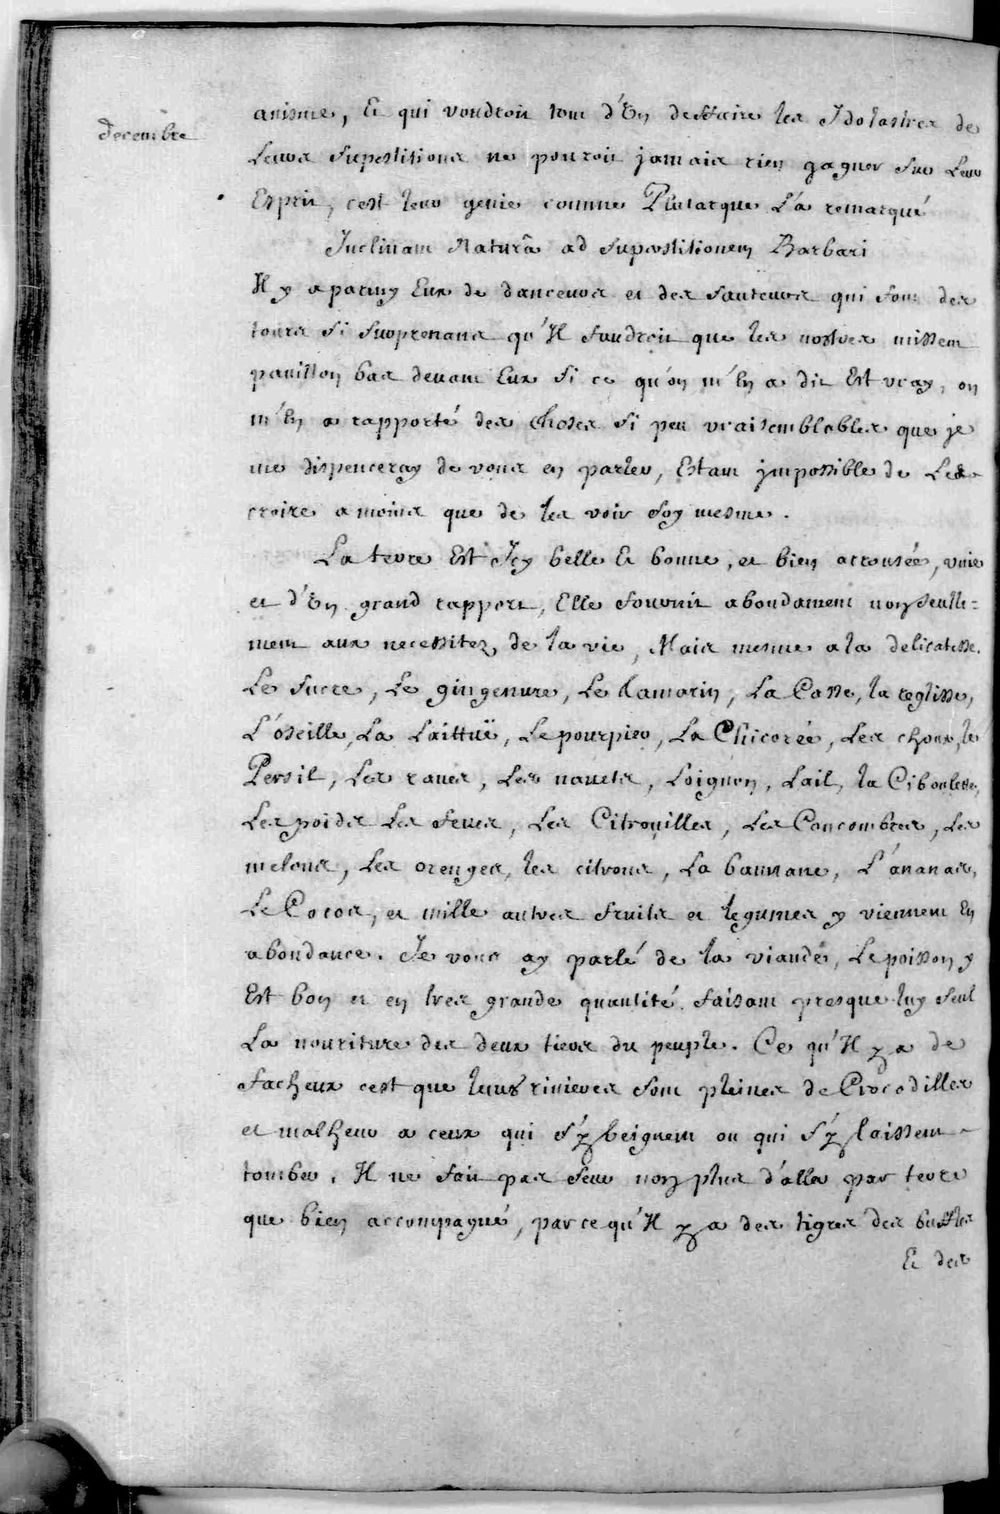 Decembre
anisme, Et qui voudroit tout d'Un deffaire les Idolastres de
Leurs Supestitions ne pouroit jamais rien gagner sur Leur
Esprit, c'est leur genie comme Plutarque L'a remarqué
Inclinant Naturâ ad superstitionem Barbari
Il y a parmy Eux de danceurs et des sauteurs qui font des
tours si surprenans qu'Il faudroit que les nostres missent
pavillon bas devant Eux si ce qu'on m'En a dit Est vray, on
m'En a rapporté des choses si peu vraisemblables que je
me dispenceray de vous en parler, Estant jmpossible de Les
croire a moins que de les voir soy mesme.
La terre Est Icy belle Et bonne, et bien arrousée, vnie
et d'Un grand rapport, Elle fournit abondament non seulle=
ment aux necessitez de la vie, Mais mesme a la delicatesse.
Le sucre, Le gingenvre, Le tamarin, La Casse, la reglisse,
L'oseille, La Laittuë, Le pourpier, La Chicorée, Les choux, le
Persil, Les raves, Les navets, Loignon, Lail, la Ciboulette,
Les poids Les feves, Les Citrouilles, Les Concombres, Les
melons, Les orenges, les citrons, La bannane, L'ananas,
Le Cocos, et mille autres fruits et legumes y viennent En
abondance. Je vous ay parlé de la viande, Le poisson y
Est bon et en tres grande quantité faisant presque luy seul
La nouriture des deux tiers du peuple. Ce qu'Il y a de
facheux c'est que leurs rivieres sont pleines de Crocodilles
et malheur a ceux qui s'y beignent ou qui s'y laissent
tomber. Il ne fait pas seur non plus d'aller par terre
que bien accompagné, par ce qu'Il y a des tigres des buffles
Et des